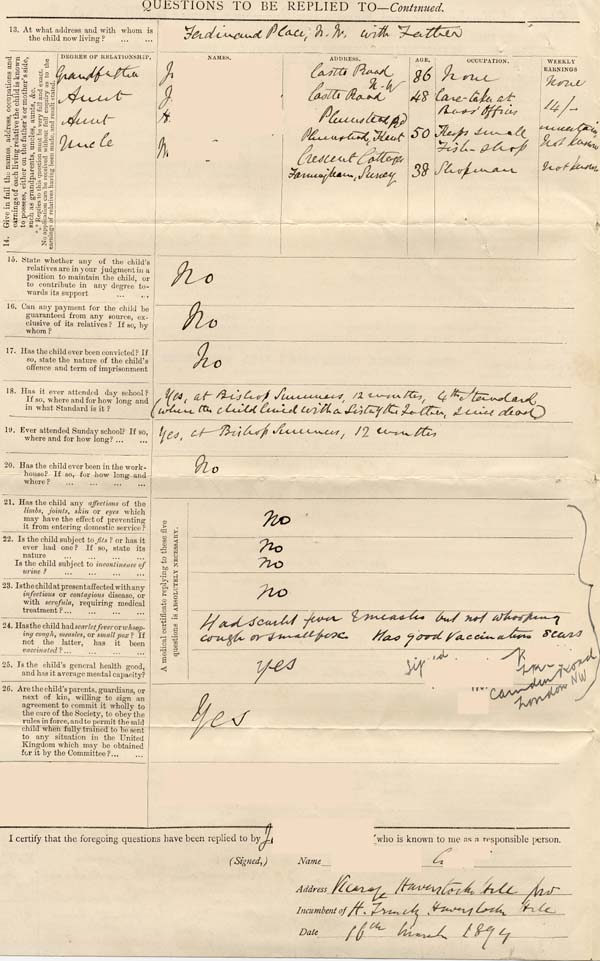 QUESTIONS TO BE REPLIED TO—Continued.
13. At what address and with whom is
the child now living? ... ...
Ferdinand Place, N.W. with Father
14. Give in full the names, address, occupations and
earnings of each living relative the child is known
to possess, either on the father's or mother's side,
such as grandparents, uncles, aunts, &c.
*** Replies to this question must be very full and exact.
No application can be received without full enquiry as to the
earnings of relatives having been made, and result stated.
DEGREE OF RELATIONSHIP. NAMES. ADDRESS. AGE. OCCUPATION. WEEKLY EARNINGS
Grandfather J. Castle Road N.W 86 None None
Aunt J. Castle Road 48 Care-taker at 14/-
Offices
Aunt H. Plumstead Rd
Plumstead, Kent 50 Keeps small uncertain
Fish-shop
Uncle W. Crescent Cottages
Surrey 38 Shopman not known
15. State whether any of the child's
relatives are in your judgment in a
position to maintain the child, or
to contribute in any degree to-
wards its support ... ...
No
16. Can any payment for the child be
guaranteed from any source, ex-
clusive of its relatives? If so, by
whom?
No
17. Has the child ever been convicted? If
so, state the nature of the child's
offence and term of imprisonment
No
18. Has it ever attended day school?
If so, where and for how long and
in what Standard is it?
Yes, at Bishop Sumners, 12 months, 4th Standard
(when the child lived with a Sister of the Father, since dead)
19. Ever attended Sunday school? If so,
where and for how long? ... ...
Yes, at Bishop Sumners, 12 months
20. Has the child ever been in the work-
house? If so, for how long and
where? ... ... ... ...
No
A medical certificate replying to these five
questions is ABSOLUTELY NECESSARY.
21. Has the child any affections of the
limbs, joints, skin or eyes which
may have the effect of preventing
it from entering domestic service?
No
22. Is the child subject to fits? or has it
ever had one? If so, state its
nature ... ... ... ...
No
Is the child subject to incontinence of
urine? ... ... ... ...
No
23. Is the child at present affected with any
infectious or contagious disease, or
with scrofula, requiring medical
treatment? ... ... ... ...
No
24. Has the child had scarlet fever or whoop-
ing cough, measles, or small pox? If
not the latter, has it been
vaccinated? ... ... ... ...
Had scarlet fever & measles but not whooping
cough or smallpox Has good vaccination scars
25. Is the child's general health good,
and has it average mental capacity?
yes
Camden Road
London NW
26. Are the child's parents, guardians, or
next of kin, willing to sign an
agreement to commit it wholly to
the care of the Society, to obey the
rules in force, and to permit the said
child when fully trained to be sent
to any situation in the United
Kingdom which may be obtained
for it by the Committee? ... ...
Yes
I certify that the foregoing questions have been replied to by J. who is known to me as a responsible person.
(Signed,) Name
Address Vicarage Haverstock Hill NW
Incumbent of H. Trinity Haverstock Hill
Date 16th March 1894